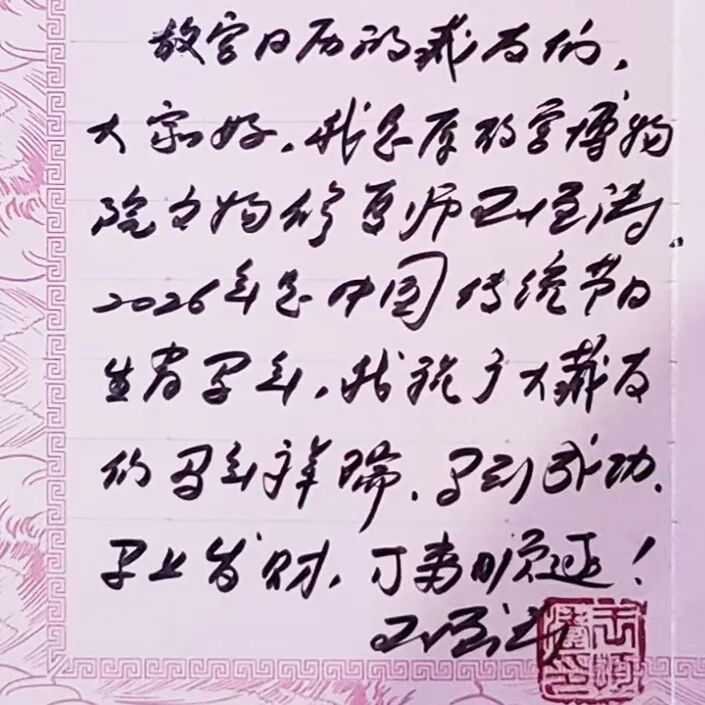 故宫日历的藏友们,
大家好,我是原故宫博物
院文物修复师王
2026年是中国传统节日
生肖马年,我祝广大藏友
们马年祥瑞,马到成功,
马上发财,万事顺遂!
王